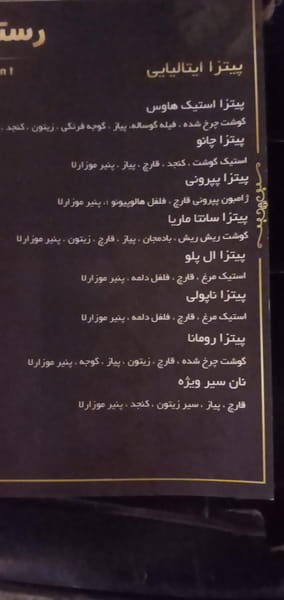 رست
n !
پیتزا ایتالیایی
پیتزا استیک هاوس
گوشت چرخ شده ، فیله گوساله، پیاز ، گوجه فرنگی ، زیتون ، کنجد ،
پیتزا چانو
استیک گوشت ، کنجد ، قارچ ، پیاز ، پنیر موزارلا
پیتزا پپرونی
ژامبون پپرونی قارچ ، فلفل هالوپینو ، پنیر موزارلا
پیتزا سانتا ماریا
گوشت ریش ریش ، بادمجان ، پیاز ، قارچ ، زیتون ، پنیر موزارلا
پیتزا ال پلو
استیک مرغ ، قارچ ، فلفل دلمه ، پنیر موزارلا
پیتزا ناپولی
استیک مرغ ، قارچ ، فلفل دلمه ، پنیر موزارلا
پیتزا رومانا
گوشت چرخ شده ، قارچ ، زیتون ، پیاز ، گوجه ، پنیر موزارلا
نان سیر ویژه
قارچ ، پیاز ، سیر زیتون ، کنجد ، پنیر موزارلا